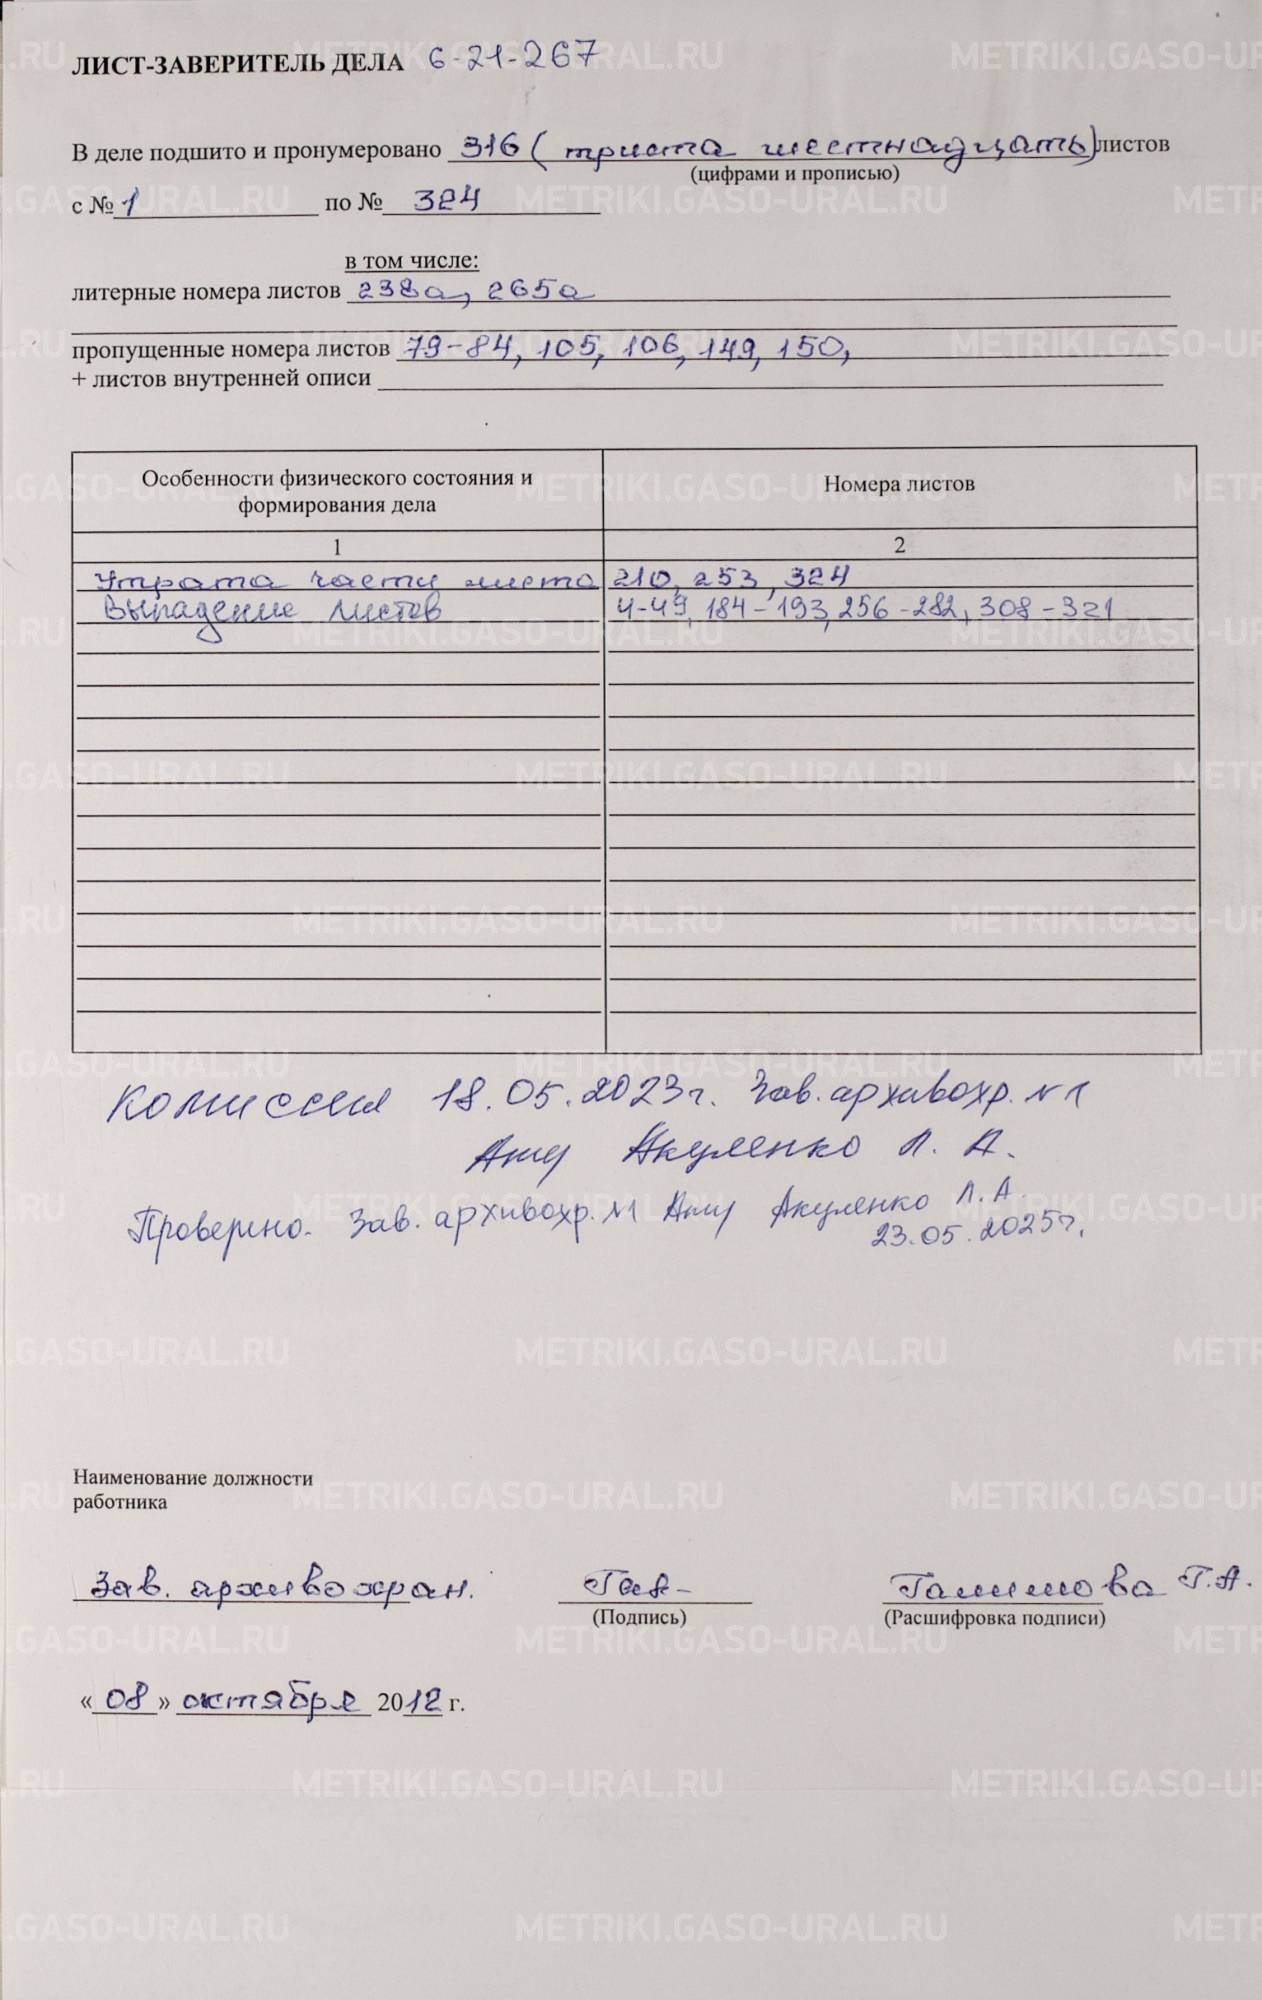 ЛИСТ-ЗАВЕРИТЕЛЬ ДЕЛА 6-21-267
В деле подшито и пронумеровано 316 ( триста шестнадцать) листов
(цифрами и прописью)
с № 1 по № 324
в том числе:
литерные номера листов 238а, 265а
пропущенные номера листов 79-84, 105, 106, 149, 150,
+ листов внутренней описи
Особенности физического состояния и формирования дела Номера листов
1 2
Утрата части листа 210, 253, 324
Выпадение листов 4-49, 184-193, 256-282, 308-321
Комиссия 18.05.2023г. Зав. архивохр. №1
Акуленко Л. А.
Проверено. Зав. архивохр. №1 Акуленко Л.А.
23.05.2025г.
Наименование должности
работника
Зав. архивохран. Галимова Г.А.
(Подпись) (Расшифровка подписи)
«08» октября 2012 г.
METRIKI.GASO-URAL.RU